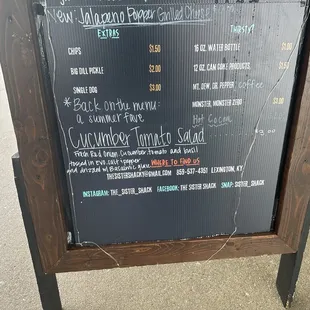 New: Jalapeño Popper Grilled Cheese
EXTRAS
THIRSTY?
CHIPS $1.50
16 OZ. WATER BOTTLE $1.00
BIG DILL PICKLE $2.00
12 OZ. CAN COKE PRODUCTS
SINGLE DOG $3.00
MT. DEW, DR. PEPPER coffee
MONSTER, MONSTER ZERO $3.00
* Back on the menu:
a summer fave
Hot Cocoa
Cucumber Tomato Salad
Fresh Red onion, Cucumber, tomato and basil
tossed in evo, salt & pepper
and drizzled w/ Balsamic glaze
WHERE TO FIND US
THESISTERSHACKY@GMAIL.COM 859-537-4351 LEXINGTON, KY
INSTAGRAM: THE_SISTER_SHACK FACEBOOK: THE SISTER SHACK SNAP: SISTER_SHACK